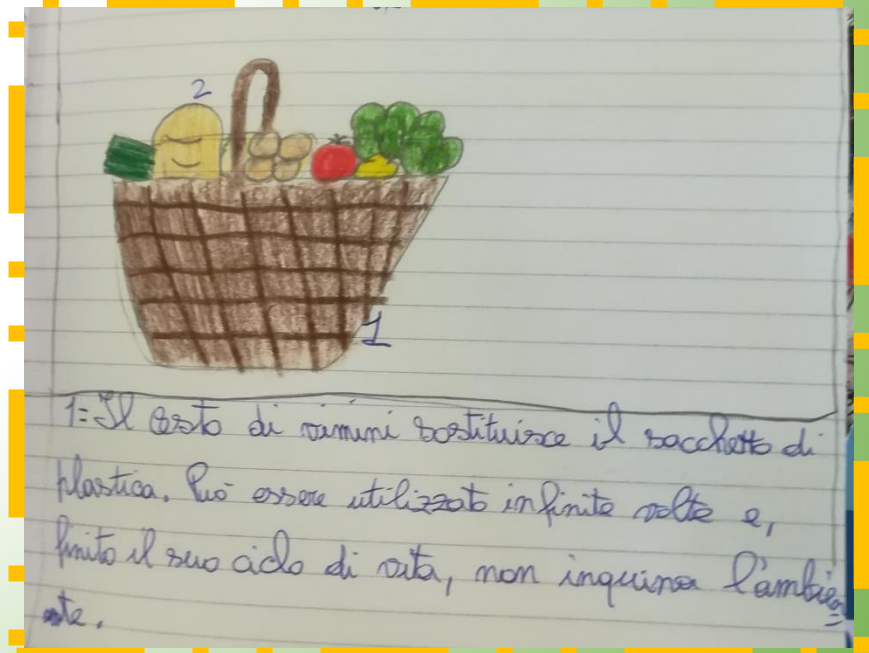 2
1
1= Il cesto di vimini sostituisce il sacchetto di
plastica. Può essere utilizzato infinite volte e,
finito il suo ciclo di vita, non inquina l'ambie=
nte.